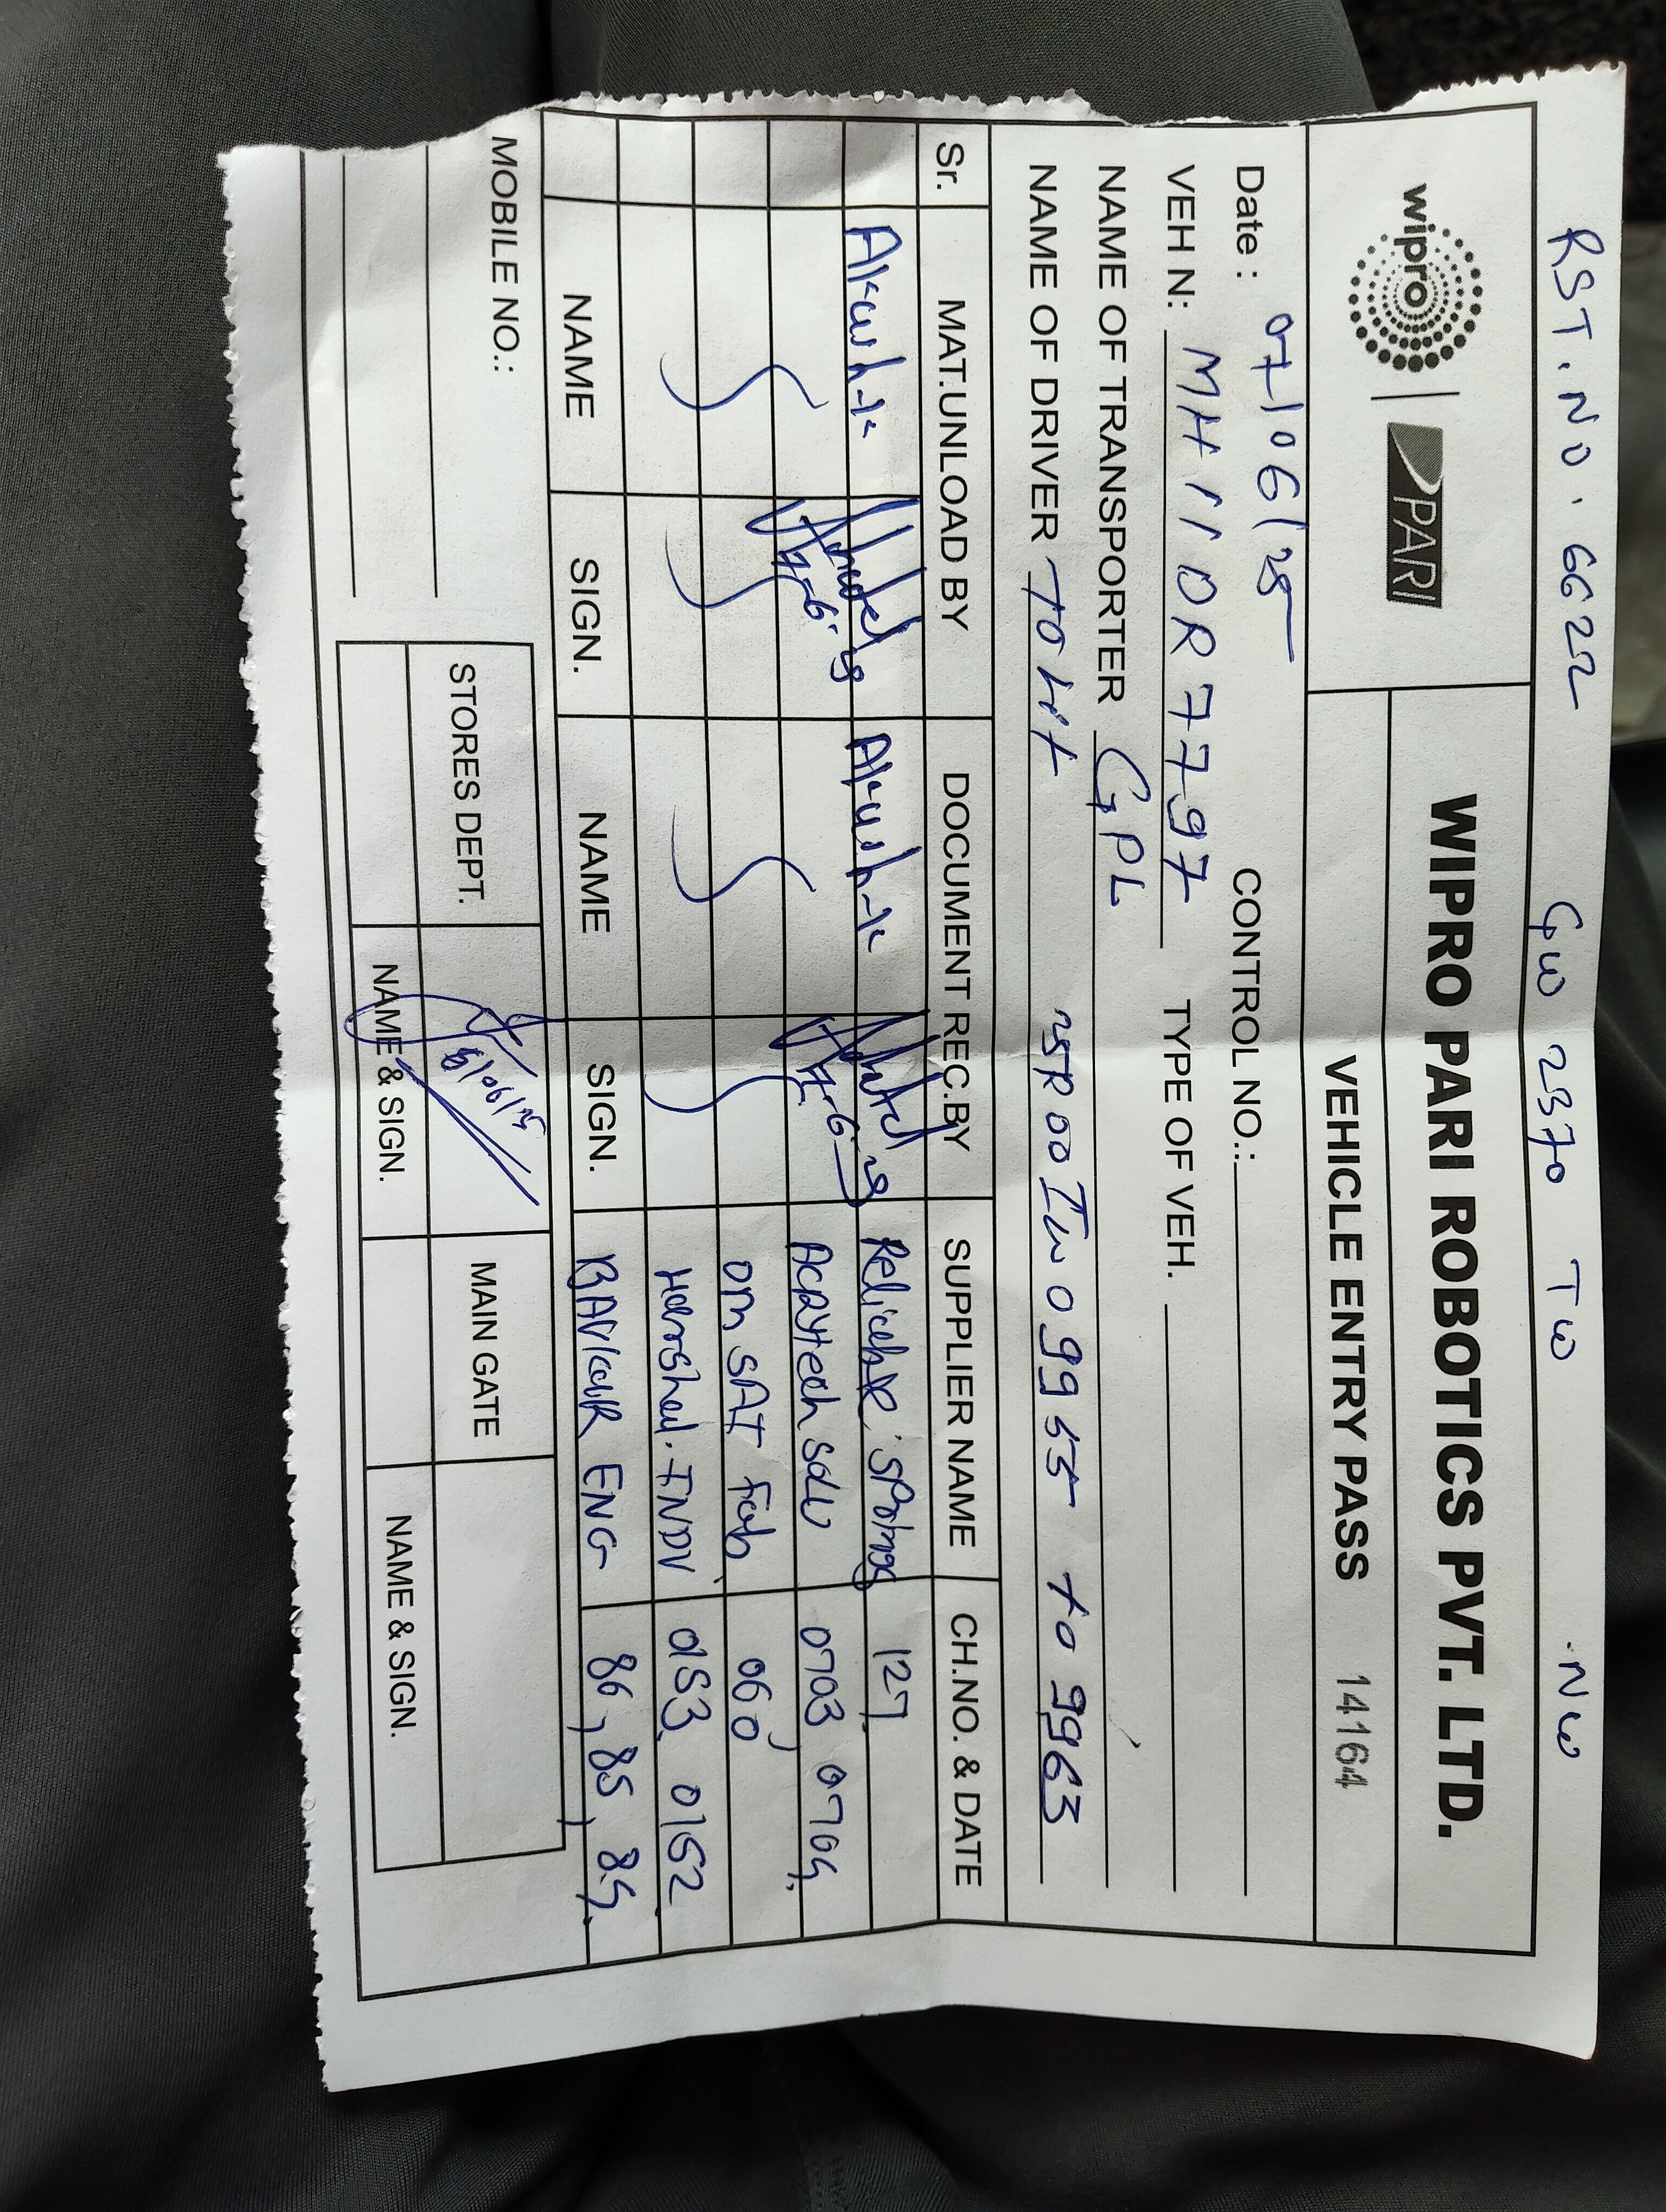 RST. NO. 6622 GW 2370 TW NW
wipro PARI
WIPRO PARI ROBOTICS PVT. LTD.
VEHICLE ENTRY PASS 14164
Date : 07/06/25 CONTROL NO.:
VEH N: MH11 OR 7797 TYPE OF VEH.
NAME OF TRANSPORTER GPL
NAME OF DRIVER 25R00IW09955 to 9963
Sr. MAT.UNLOAD BY DOCUMENT REC.BY SUPPLIER NAME CH.NO. & DATE
127
0703 0704,
OM SAI Fab 060
Harshal. INDV 0153, 0152
NAME SIGN. NAME SIGN. ENG 86, 85
MOBILE NO.:
STORES DEPT. MAIN GATE
NAME & SIGN. NAME & SIGN.